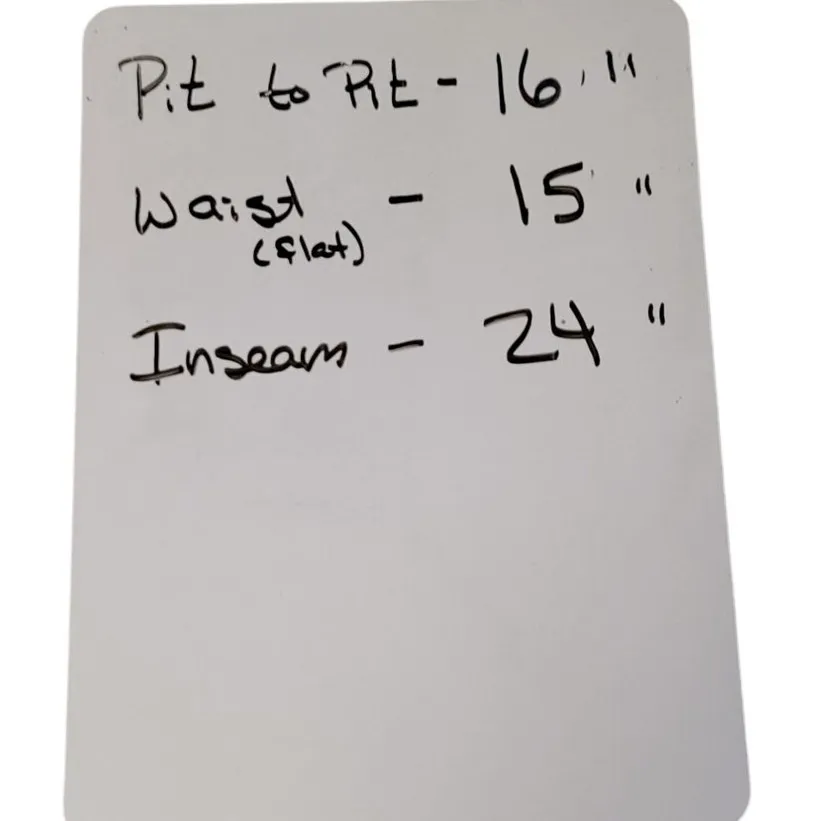 Pit to Pit - 16"
Waist - 15"
(flat)
Inseam - 24"